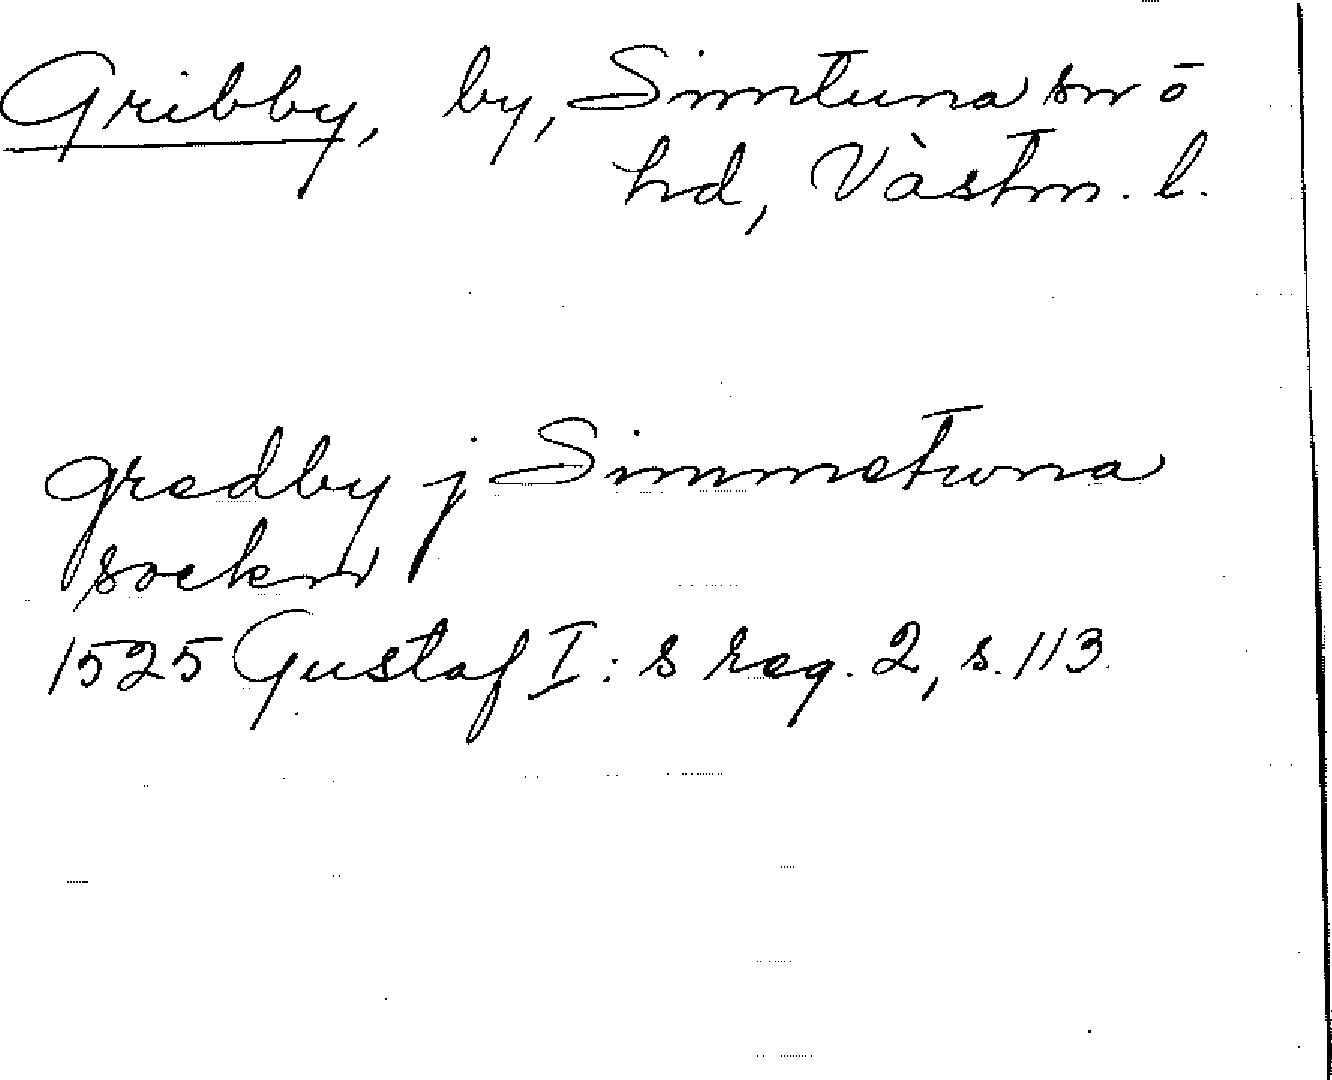 Gribby, by, Simtuna sn o
hd, Västm. l.
gredby j Simmetwna
sockn
1525 Gustaf I:s reg. 2, s. 113